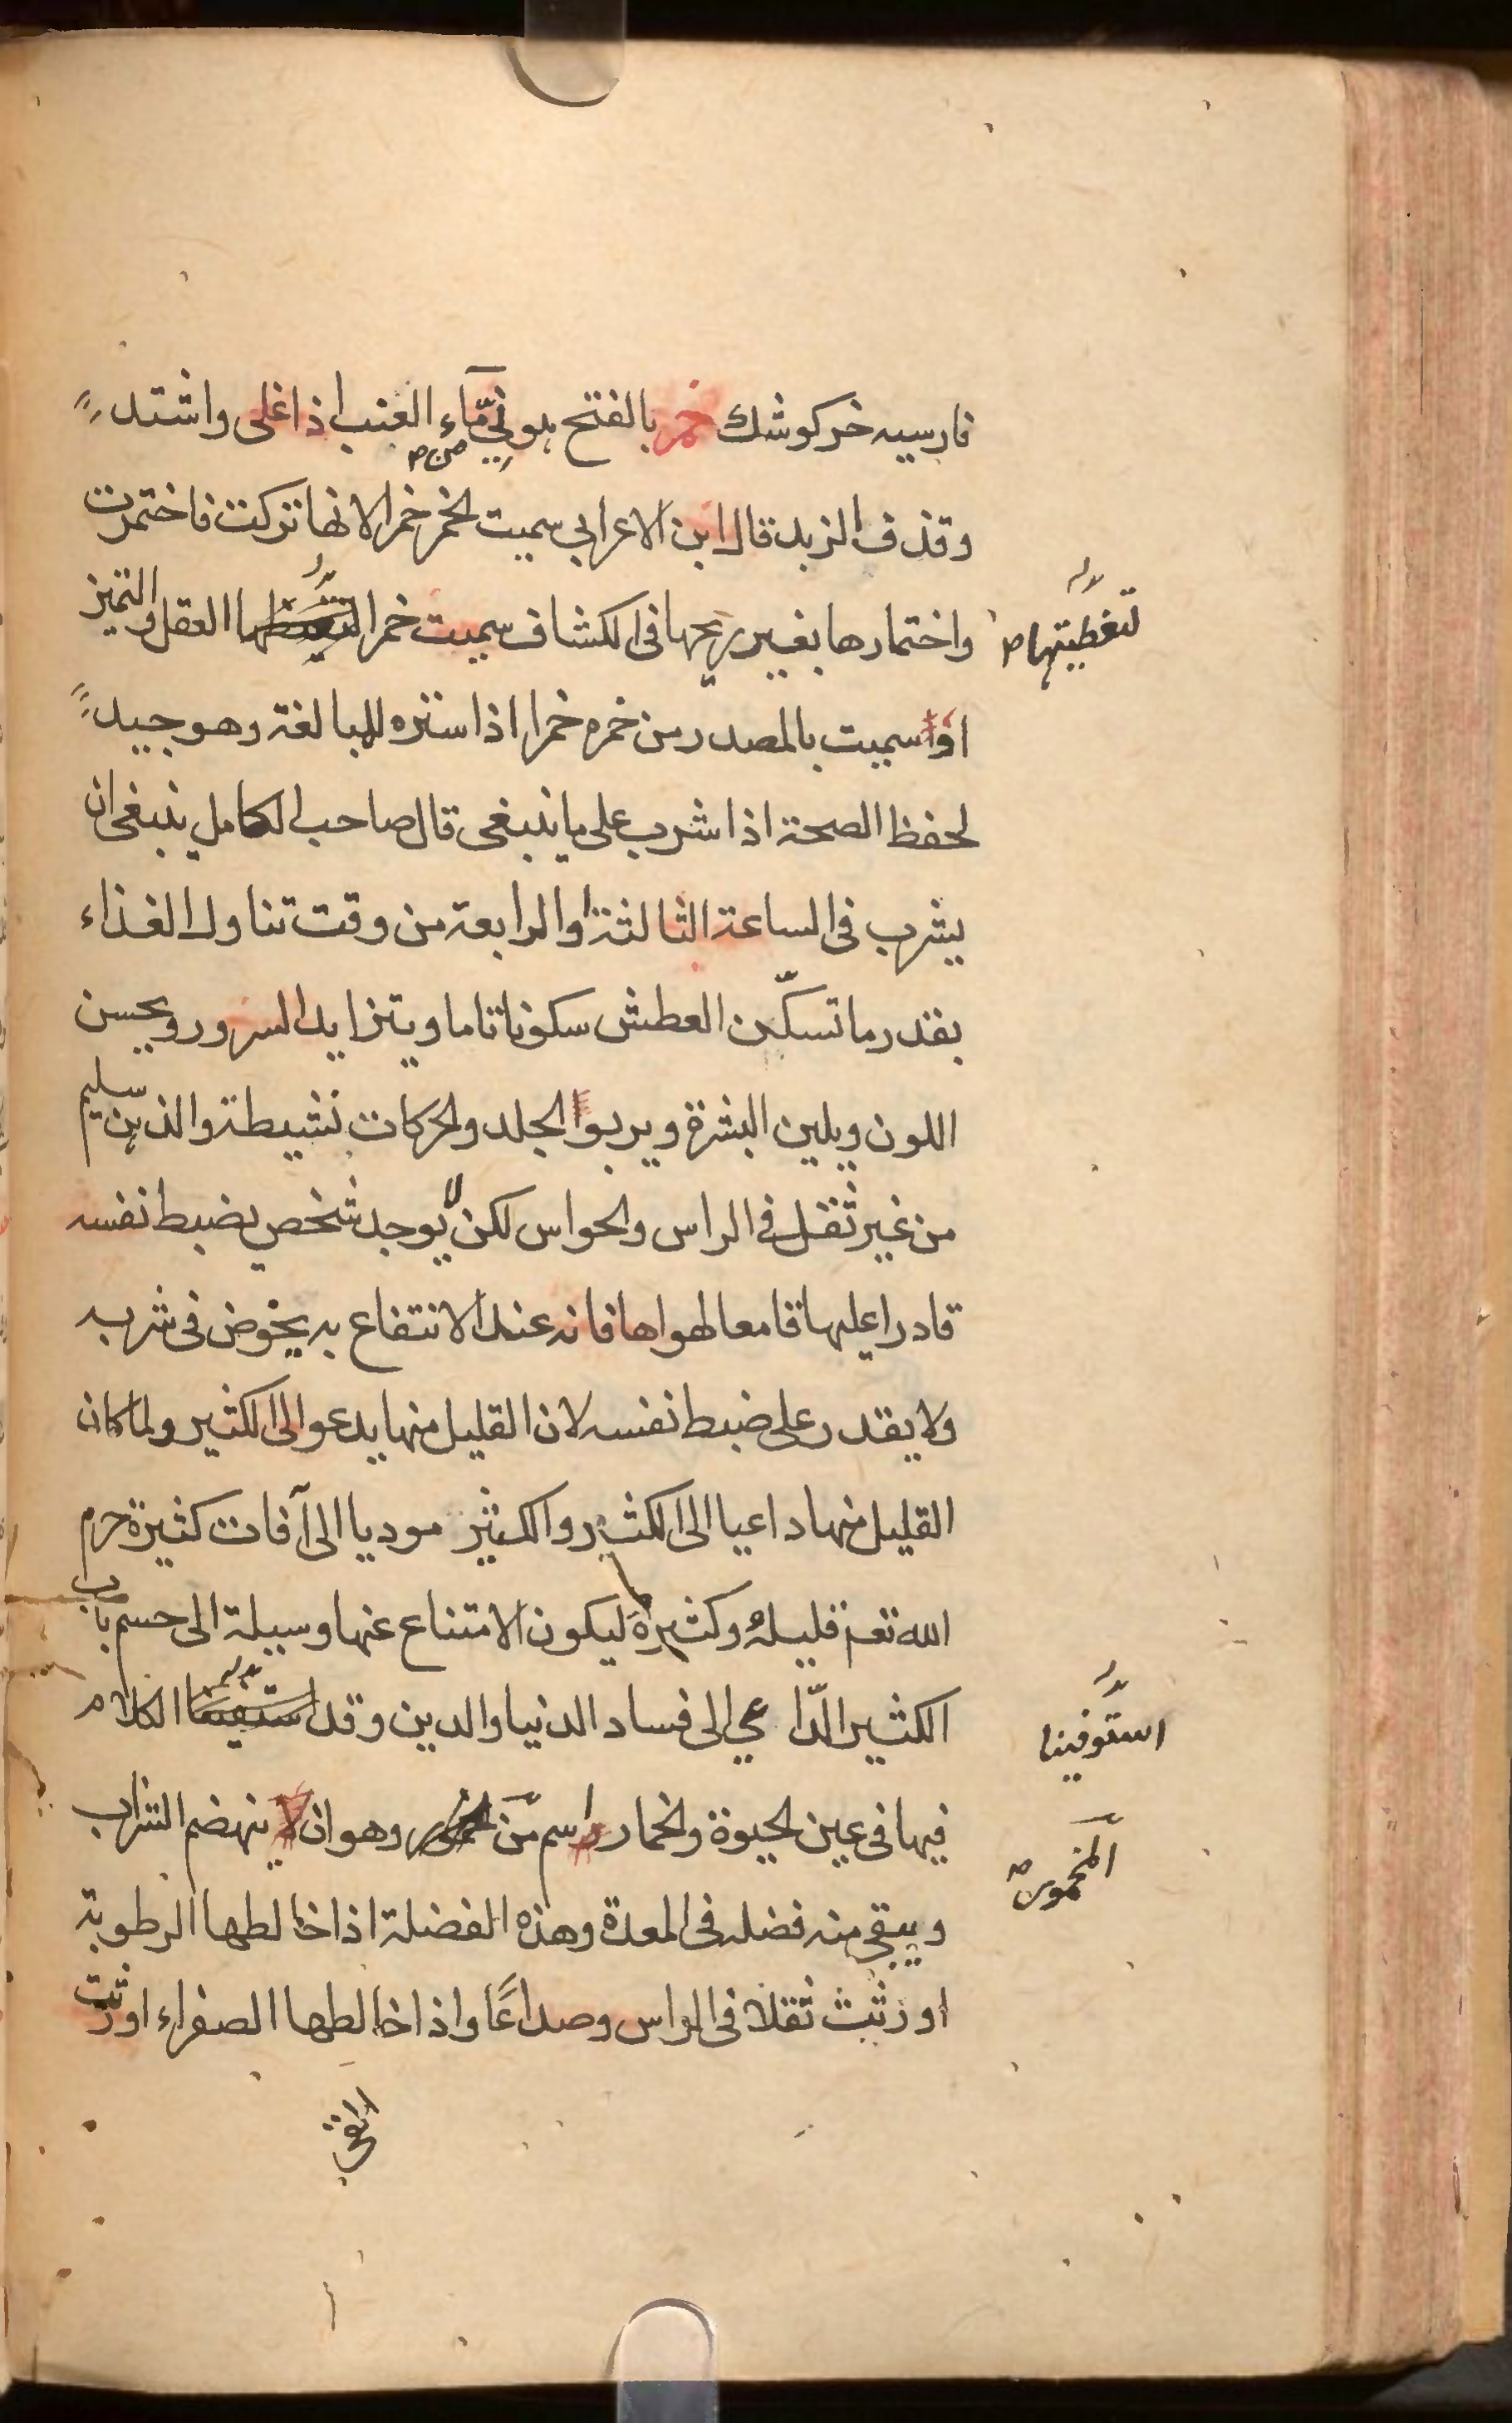 فارسيه خركوشك خمر بالفتح هو نيّ مّاء العنب اذا غلى واشتد
من
وقذف الزبد قال ابن الاعرابي سميت الخمر خمرا لانها تركت فاختمرت
واختمارها بغيير ريحها فى الكشاف سميت خمرا العقل والتميز
لتغطيتها
او سميت بالمصدر من خمره خمرا اذا ستره للمبالغة وهو جيد
لحفظ الصحة اذا شرب على ما ينبغى قال صاحب الكامل ينبغى ان
يشرب فى الساعة الثالثة او الرابعة من وقت تناول الغذاء
بقدر ما تسكّن العطش سكونا تاما ويتزايد السرور ويحسن
اللون ويلين البشرة ويربوا الجلد والحركات نشيطة والذهن سليم
من غير ثقل فى الراس والحواس لكن لا يوجد شخص يضبط نفسه
قادرا عليها قامعا لهواها فانه عند الانتفاع به يخوض فى شربه
ولا يقدر على ضبط نفسه لان القليل منها يدعو الى الكثير ولما كان
القليل منها داعيا الى الكثير والكثير موديا الى آفات كثيرة حرم
الله تعم قليلهُ وكثيرهَ ليكون الامتناع عنها وسيلة الى حسم باب
الكثير الدّاعي الى فساد الدنيا والدين وقد الكلام
استوفينا
فيها فى عين الحيوة والخمار اسم من وهو ان لا ينهضم الشراب
المخمور
ويبقى منه فضله فى المعدة وهذه الفضلة اذا خالطها الرطوبة
اورثت ثقلا فى الراس وصداعًا واذا خالطها الصفراء اورثت